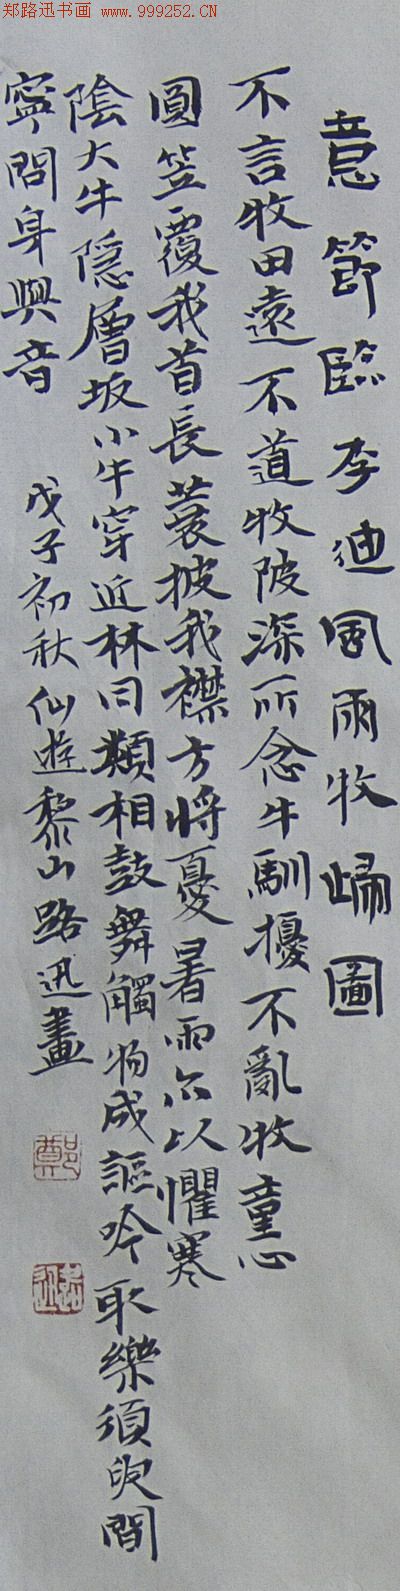 郑路迅书画 www.999252.CN
意節臨李迪風雨牧歸圖
不言牧田遠不道牧陂深所念牛馴擾不亂牧童心
圓笠覆我首長蓑披我襟方將憂暑雨亦以懼寒
陰大牛隱層坂小牛穿近林同類相鼓舞觸物成謳吟取樂須臾間
寧問身與音
戊子初秋仙遊黎山路迅畫
鄭
路迅